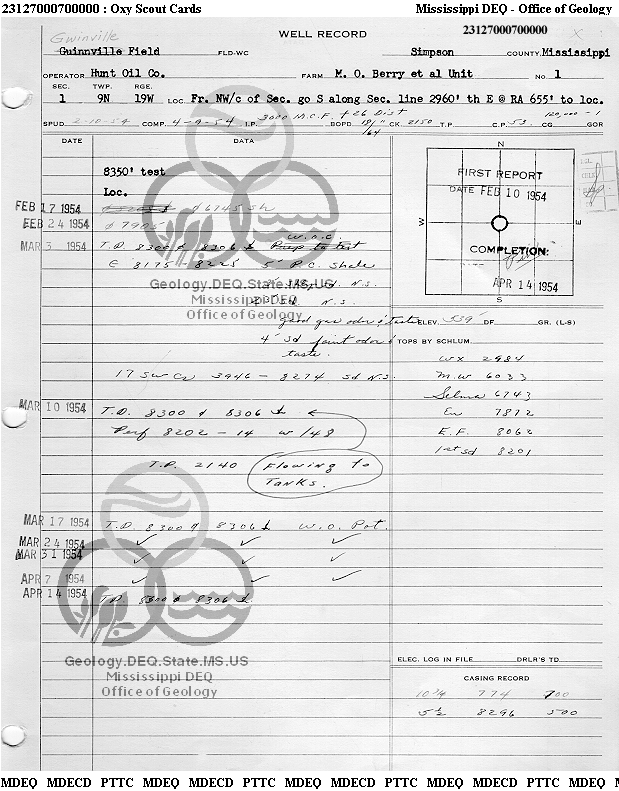 23127000700000 : Oxy Scout Cards Mississippi DEQ - Office of Geology
Gwinville WELL RECORD 23127000700000 X
Guinnville Field FLD-WC Simpson COUNTY Mississippi
OPERATOR Hunt Oil Co. FARM M. O. Berry et al Unit NO. 1
SEC. TWP. RGE.
1 9N 19W LOC. Fr. NW/c of Sec. go S along Sec. line 2960' th E @ RA 655' to loc.
SPUD 2-10-54 COMP. 4-9-54 I.P. 3000 M.C.F. + 26 Dist BOPD 18/64" CK. 2150 T.P. C.P. 53 CG 120,000-1 GOR
DATE DATA N
8350' test
Loc.
FIRST REPORT
DATE FEB 10 1954
W E
COMPLETION:
APR 14 1954
S
FEB 17 1954 d 6745 sh
FEB 24 1954 d 7905
MAR 3 1954 T.D. 8300 d 8306 L W.O.C. Prep to test
C 8175 - 8225 5' P.C. Shale
N.S.
N.S.
good gas odor & taste
4' sd faint odor & taste.
17 SWC 3946 - 8274 sd N.S.
ELEV. 539' DF GR. (L-S)
TOPS BY SCHLUM.
WX 2984
M.W 6033
Selma 6743
Eu 7872
E.F. 8062
1st sd 8201
MAR 10 1954 T.D. 8300 d 8306 L
Perf 8202 - 14 w/48
T.P. 2140 Flowing to
Tanks.
MAR 17 1954 T.D. 8300 d 8306 L W.O. Pot.
MAR 24 1954 ✓ ✓ ✓
MAR 31 1954 ✓ ✓ ✓
APR 7 1954 ✓ ✓ ✓
APR 14 1954 TD 8300 d 8306 L
Geology.DEQ.State.MS.US
Mississippi DEQ
Office of Geology
Geology.DEQ.State.MS.US
Mississippi DEQ
Office of Geology
ELEC. LOG IN FILE DRLR'S TD
CASING RECORD
10 3/4 774 700
5 1/2 8296 500
MDEQ MDECD PTTC MDEQ MDECD PTTC MDEQ MDECD PTTC MDEQ MDECD PTTC MDEQ